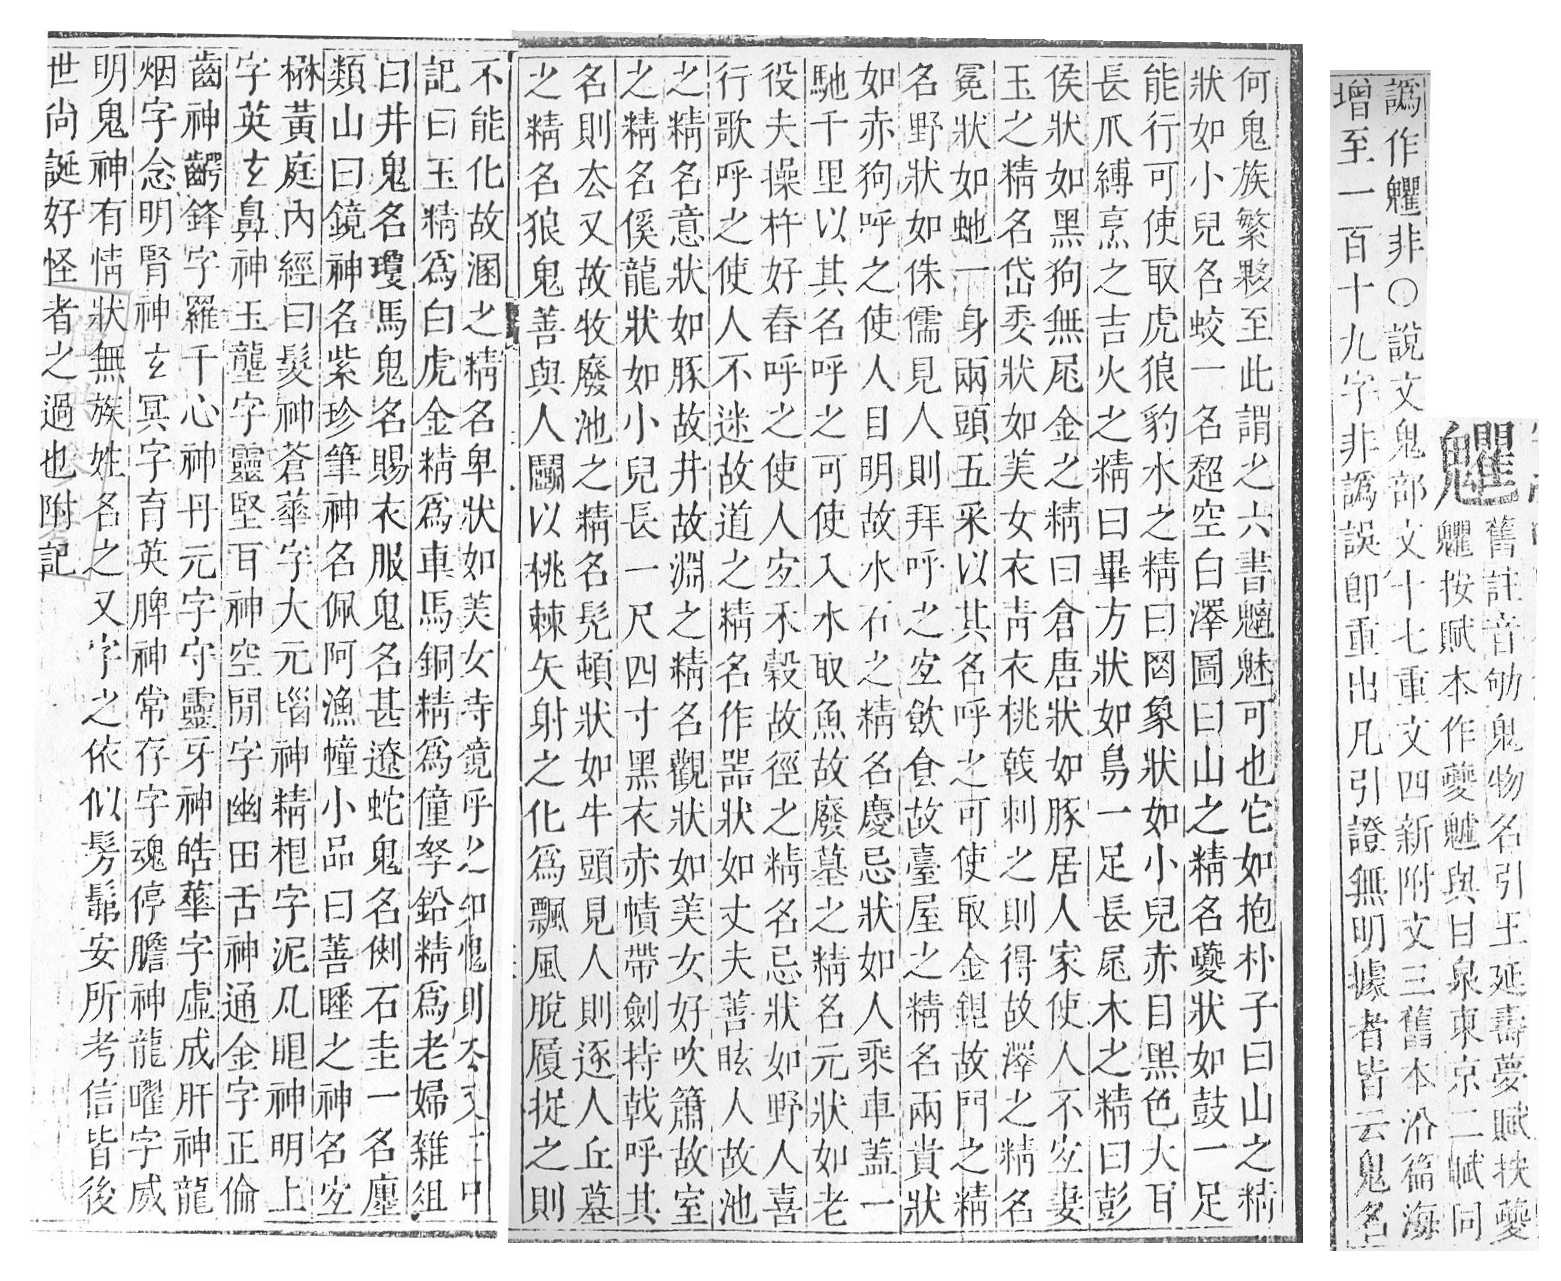 舊註音劬鬼物名引王延壽夢賦抶夔
按賦本作夔魖與甘泉東京二賦同
譌作非〇說文鬼部文十七重文四新附文三舊本沿篇海
增至一百十九字非譌誤卽重出凡引證無明據者皆云鬼名
何鬼族繁夥至此謂之六書魑魅可也它如抱朴子曰山之精
狀如小兒名蛟一名超空白澤圖曰山之精名夔狀如鼓一足
能行可使取虎狼豹水之精曰罔象狀如小兒赤目黑色大耳
長爪縛烹之吉火之精曰畢方狀如鳥一足長尾木之精曰彭
侯狀如黑狗無尾金之精曰倉唐狀如豚居人家使人不宜妻
玉之精名岱委狀如美女衣青衣桃戟刺之則得故澤之精名
冕狀如虵一身兩頭五采以其名呼之可使取金銀故門之精
名野狀如侏儒見人則拜呼之宜飲食故臺屋之精名兩貴狀
如赤狗呼之使人目明故水石之精名慶忌狀如人乘車蓋一
馳千里以其名呼之可使入水取魚故廢墓之精名元狀如老
役夫操杵好舂呼之使人宜禾穀故徑之精名忌狀如野人喜
行歌呼之使人不迷故道之精名作器狀如丈夫善眩人故池
之精名意狀如豚故井故淵之精名觀狀如美女好吹簫故室
之精名傒龍狀如小兒長一尺四寸黑衣赤幘帶劍持戟呼其
名則厺又故牧廢池之精名髡頓狀如牛頭見人則逐人丘墓
之精名狼鬼善與人鬭以桃棘矢射之化爲飄風脫屨捉之則
不能化故溷之精名卑狀如美女寺鏡呼之知愧則厺又一中
記曰玉精爲白虎金精爲車馬銅精爲僮孥鉛精爲老婦雜組
曰井鬼名瓊馬鬼名賜衣服鬼名甚遼蛇鬼名側石圭一名塵
類山曰鏡神名紫珍筆神名佩阿漁幢小品曰善睡之神名宜
楙黃庭內經曰髮神蒼華字大元㟴神精根字泥丸眼神明上
字英玄鼻神玉壟字靈堅耳神空閒字幽田舌神通金字正倫
齒神齶鋒字羅千心神丹元字守靈牙神皓華字虛成肝神龍
烟字念明腎神玄冥字育英脾神常存字魂停膽神龍曜字威
明鬼神有情狀無族姓名之又字之依似髣髴安所考信皆後
世尚誕好怪者之過也附記